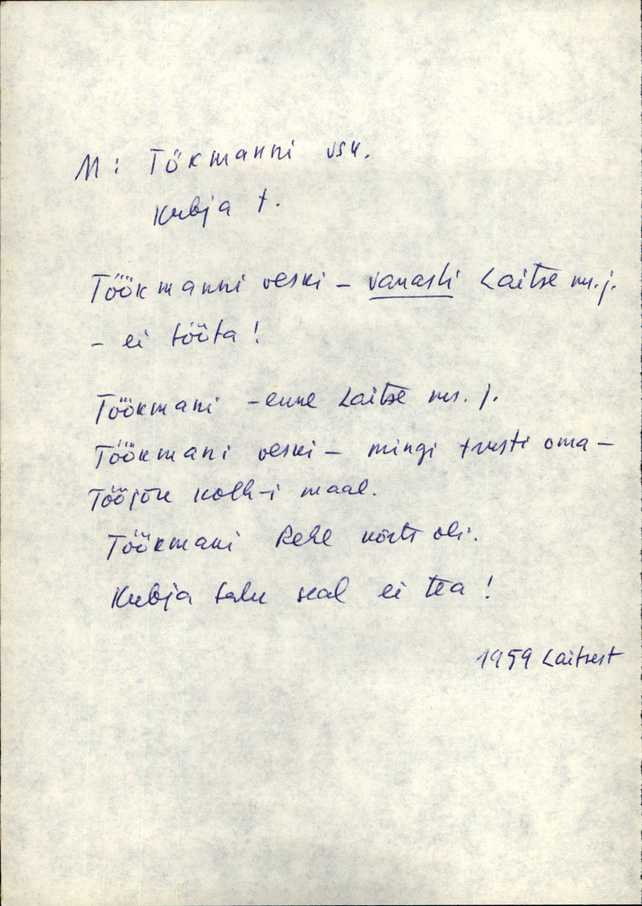 M: Tökmanni vsk.
Kubja t.
Töökmanni veski – vanasti Laitse ms. j.
– ei tööta!
Töökmani – enne Laitse ms. j.
Töökmani veski – mingi trusti oma –
Tööjõu kolh-i maal.
Töökmani Rehe kõrts oli.
Kubja talu seal ei tea!
1959 Laitsest